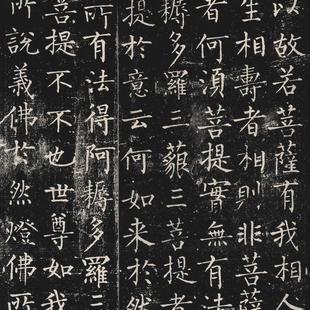 以故若菩薩有我相人
生相壽者相則非菩薩
者何須菩提實無有法
耨多羅三藐三菩提者
提於意云何如来於然
所有法得阿耨多羅三
菩提不不也世尊如我
所說義佛於然燈佛所